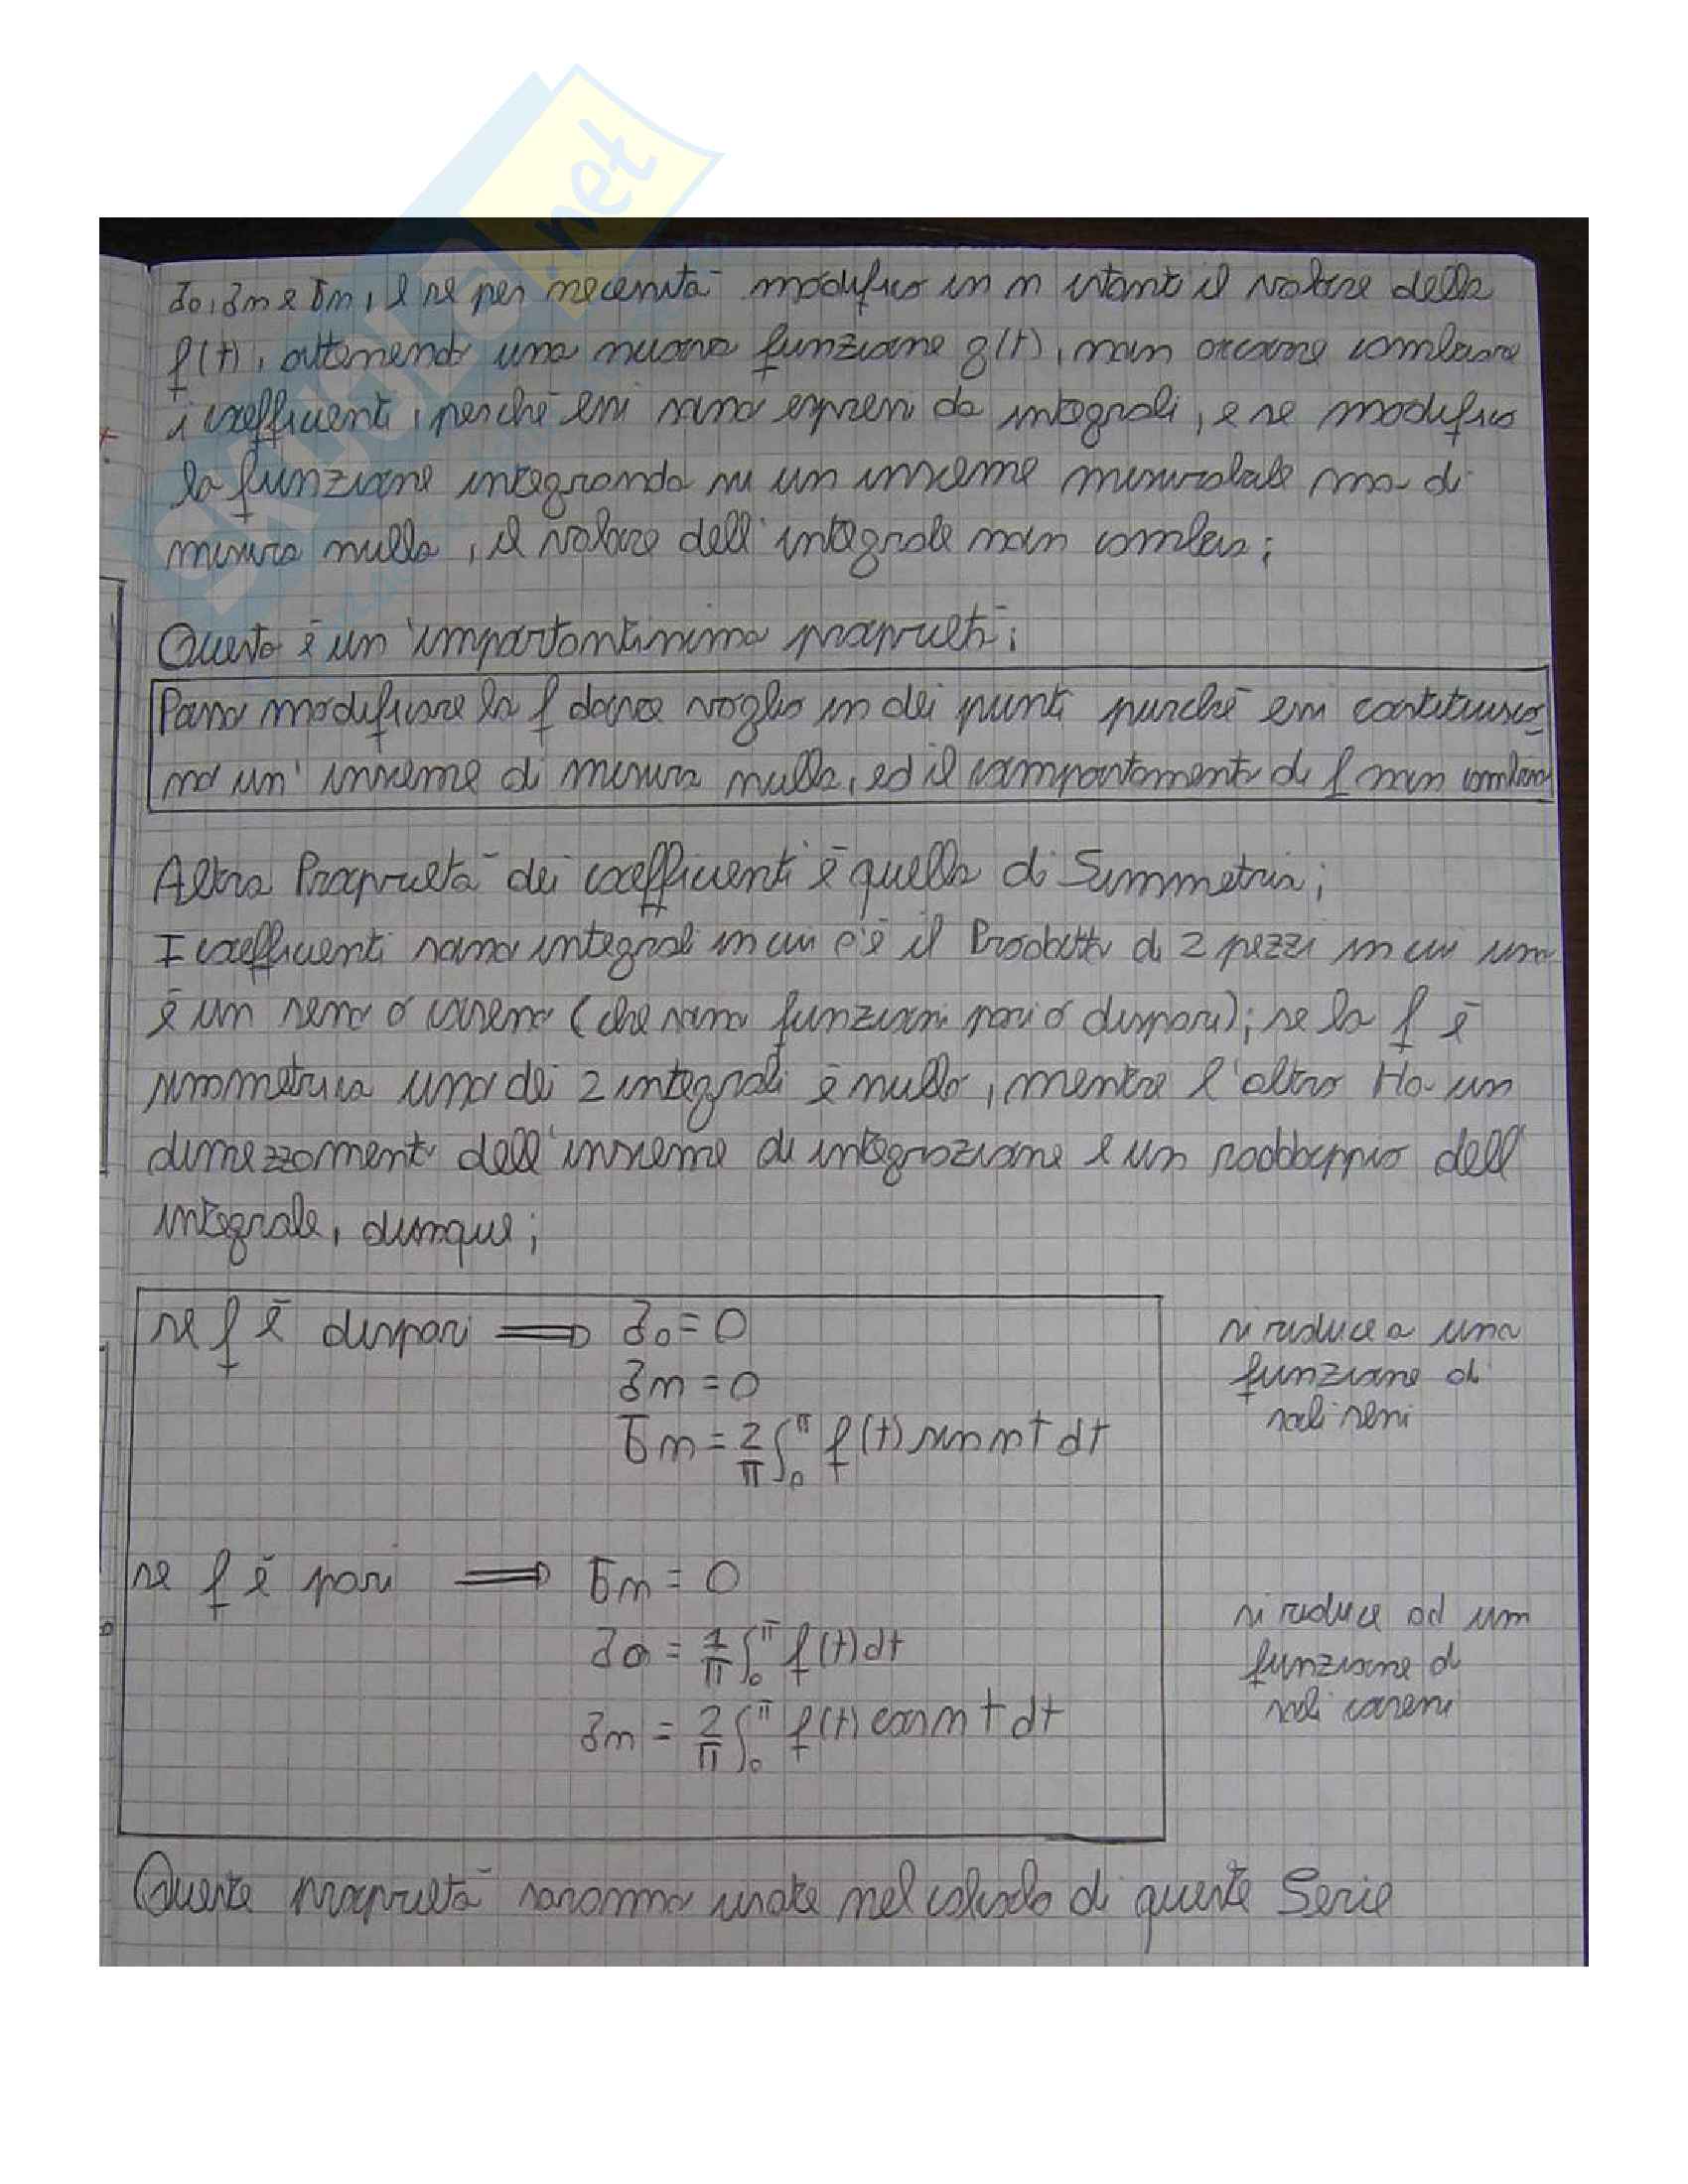 a0, an e bn, e se per necessità modifico in n istanti il valore della
f(t), ottenendo una nuova funzione g(t), non occorre cambiare
i coefficienti, perché essi sono espressi da integrali, e se modifico
la funzione integranda su un insieme misurabile ma di
misura nulla, il valore dell'integrale non cambia;
Questa è un'importantissima proprietà;
Posso modificare la f dove voglio in dei punti purché essi costituisco
no un'insieme di misura nulla, ed il comportamento di f non cambia
Altra Proprietà dei coefficienti è quella di Simmetria;
I coefficienti sono integrali in cui c'è il Prodotto di 2 pezzi in cui uno
è un seno o coseno (che sono funzioni pari o dispari); se la f è
simmetrica uno dei 2 integrali è nullo, mentre l'altro Ha un
dimezzamento dell'insieme di integrazione e un raddoppio dell'
integrale, dunque;
se f è dispari ⟹ a0 = 0
an = 0
bn = 2/π ∫₀^π f(t) sin nt dt
si riduce a una
funzione di
soli seni
se f è pari ⟹ bn = 0
a0 = 1/π ∫₀^π f(t) dt
an = 2/π ∫₀^π f(t) cos n t dt
si riduce ad una
funzione di
soli coseni
Queste proprietà saranno usate nel calcolo di queste Serie
SKUOLA.net